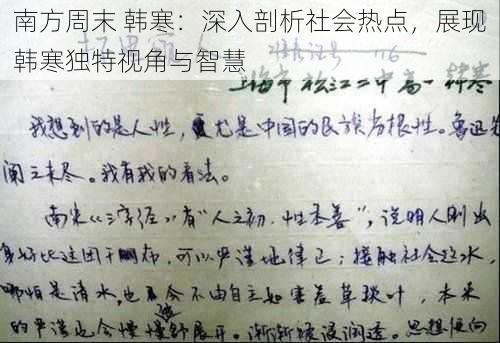 南方周末 韩寒：深入剖析社会热点，展现
韩寒独特视角与智慧
准考证号 116
上海市松江二中高一 韩寒
我想到的是人性，尤是中国的民族劣根性。鲁迅先
阐之未尽。我有我的看法。
南宋《三字经》有“人之初，性本善”，说明人刚出
身好比这团干布，可以严谨地律己；接触社会这水，
哪怕是清水，也会不由自主如害羞草叶，本来
的严谨也会慢慢舒展开。渐渐被浸润透。思想便向